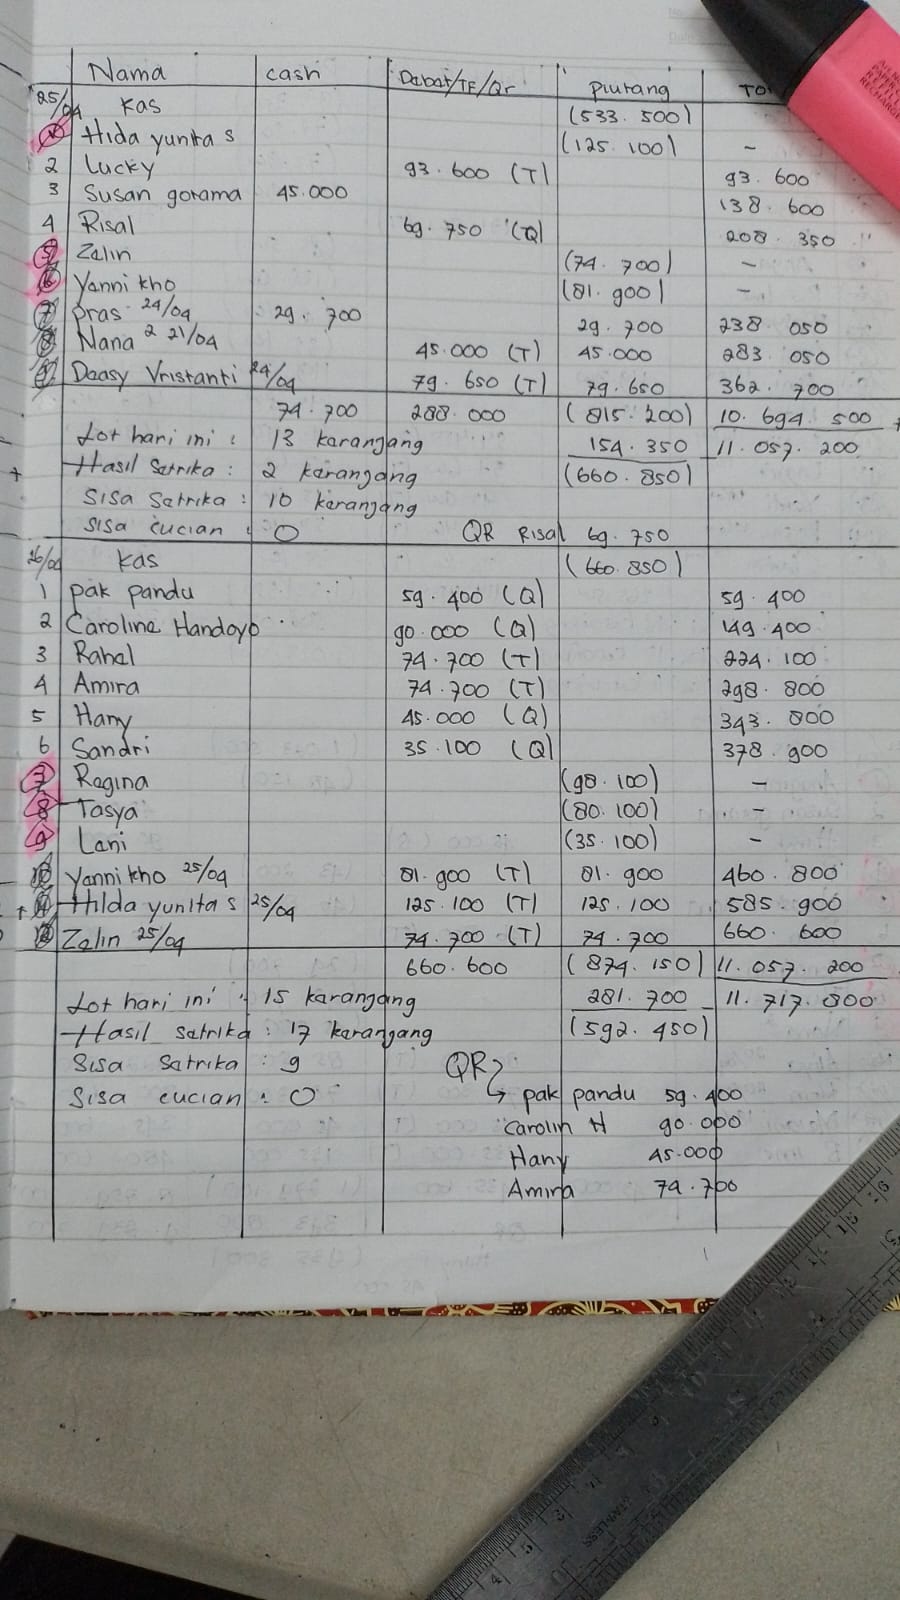 Nama cash Debet/TF/Qr piutang TO
25/04 Kas (533.500)
1 Hida yunita s (125.100) -
2 Lucky 93.600 (T) 93.600
3 Susan gorama 45.000 138.600
4 Risal 69.750 (Q) 208.350
5 Zelin (74.700) -
6 Yanni kho (81.900) -
7 pras 24/04 29.700 29.700 238.050
8 Nana 2 21/04 45.000 (T) 45.000 283.050
9 Deasy Vristanti 24/04 79.650 (T) 79.650 362.700
74.700 288.000 (815.200) 10.694.500 +
Lot hari ini : 13 keranjang 154.350 11.057.200
Hasil Setrika : 2 keranjang (660.850)
Sisa Setrika : 10 keranjang
Sisa cucian : 0 QR Risal 69.750
26/04 Kas (660.850)
1 pak pandu 59.400 (Q) 59.400
2 Caroline Handoyo 90.000 (Q) 149.400
3 Rahel 74.700 (T) 224.100
4 Amira 74.700 (T) 298.800
5 Hany 45.000 (Q) 343.800
6 Sandri 35.100 (Q) 378.900
7 Regina (98.100) -
8 Tasya (80.100) -
9 Lani (35.100) -
10 Yanni kho 25/04 81.900 (T) 81.900 460.800
11 Hilda yunita s 25/04 125.100 (T) 125.100 585.900
12 Zelin 25/04 74.700 (T) 74.700 660.600
660.600 (874.150) 11.057.200
Lot hari ini : 15 keranjang 281.700 - 11.717.800
Hasil setrika : 17 keranjang (592.450)
Sisa setrika : 9 QR
Sisa cucian : 0 pak pandu 59.400
Carolin H 90.000
Hany 45.000
Amira 74.700